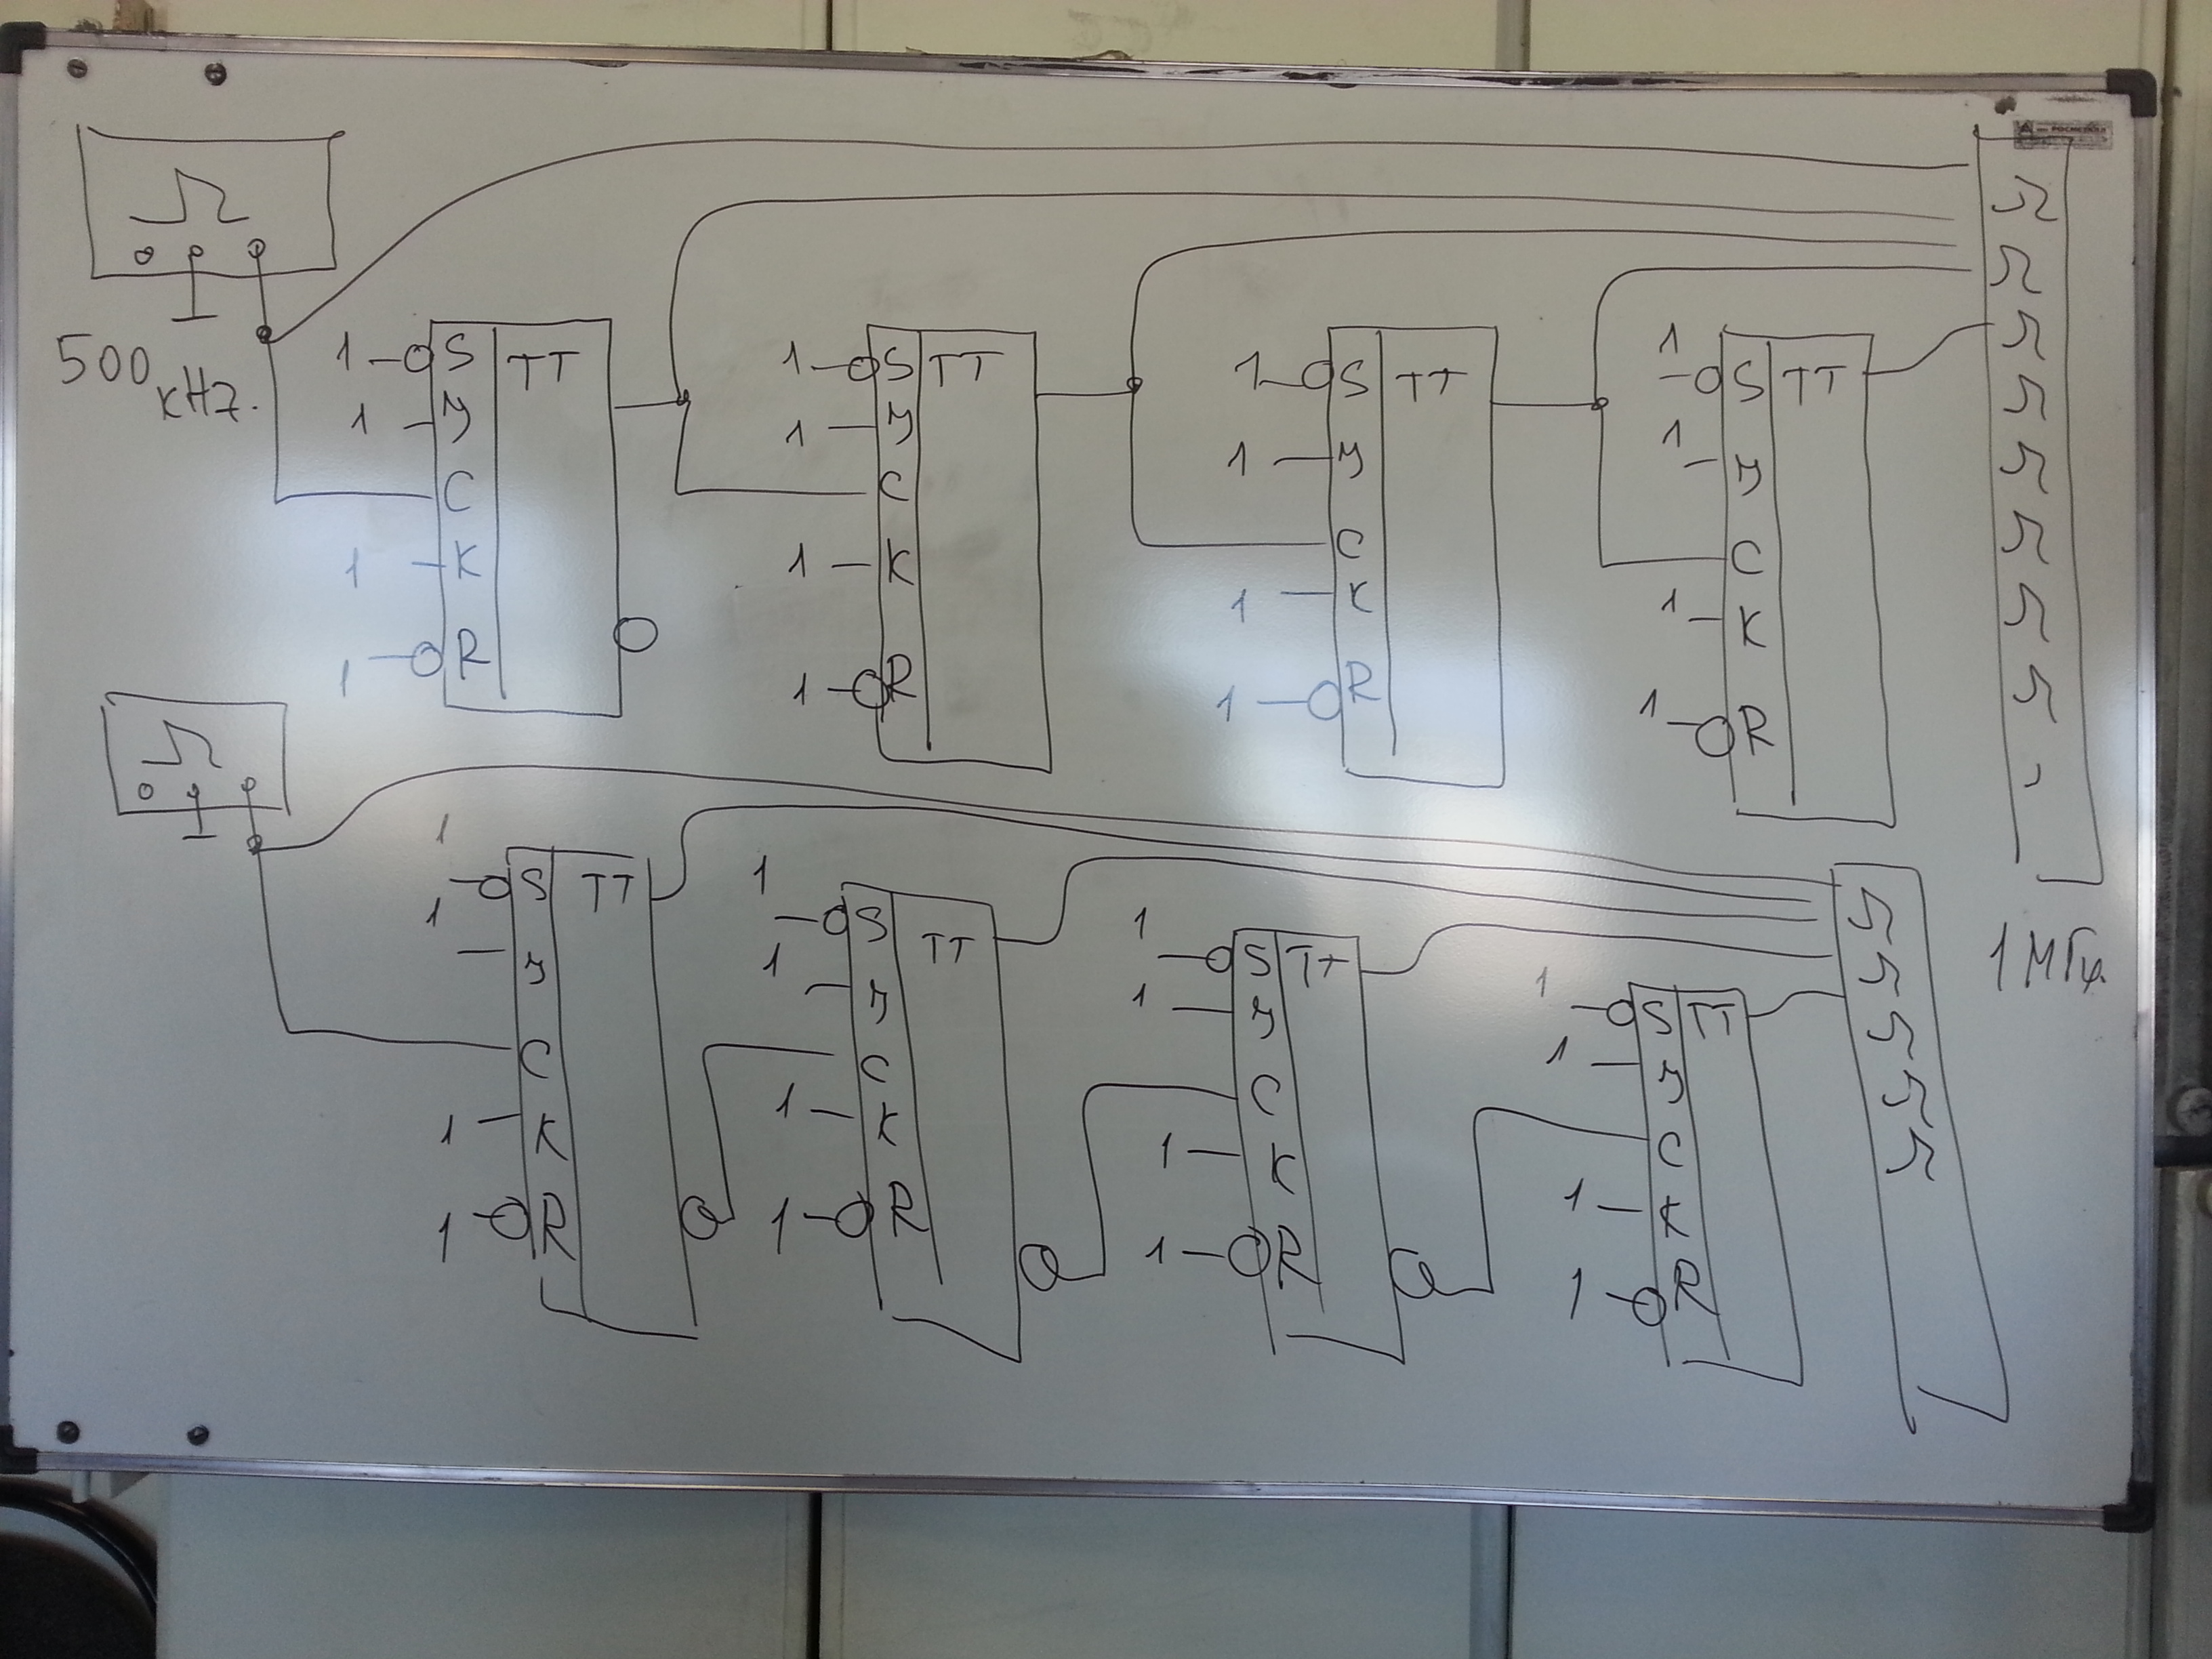 500
кHz.
1 S TT
1 J
C
1 K
1 R
1 S TT
1 J
C
1 K
1 R
1 S TT
1 J
C
1 K
1 R
1 S TT
1 J
C
1 K
1 R
1 S TT
1 J
C
1 K
1 R
1 S TT
1 J
C
1 K
1 R
1 S TT
1 J
C
1 K
1 R
1 S TT
1 J
C
1 K
1 R
1 МГц.